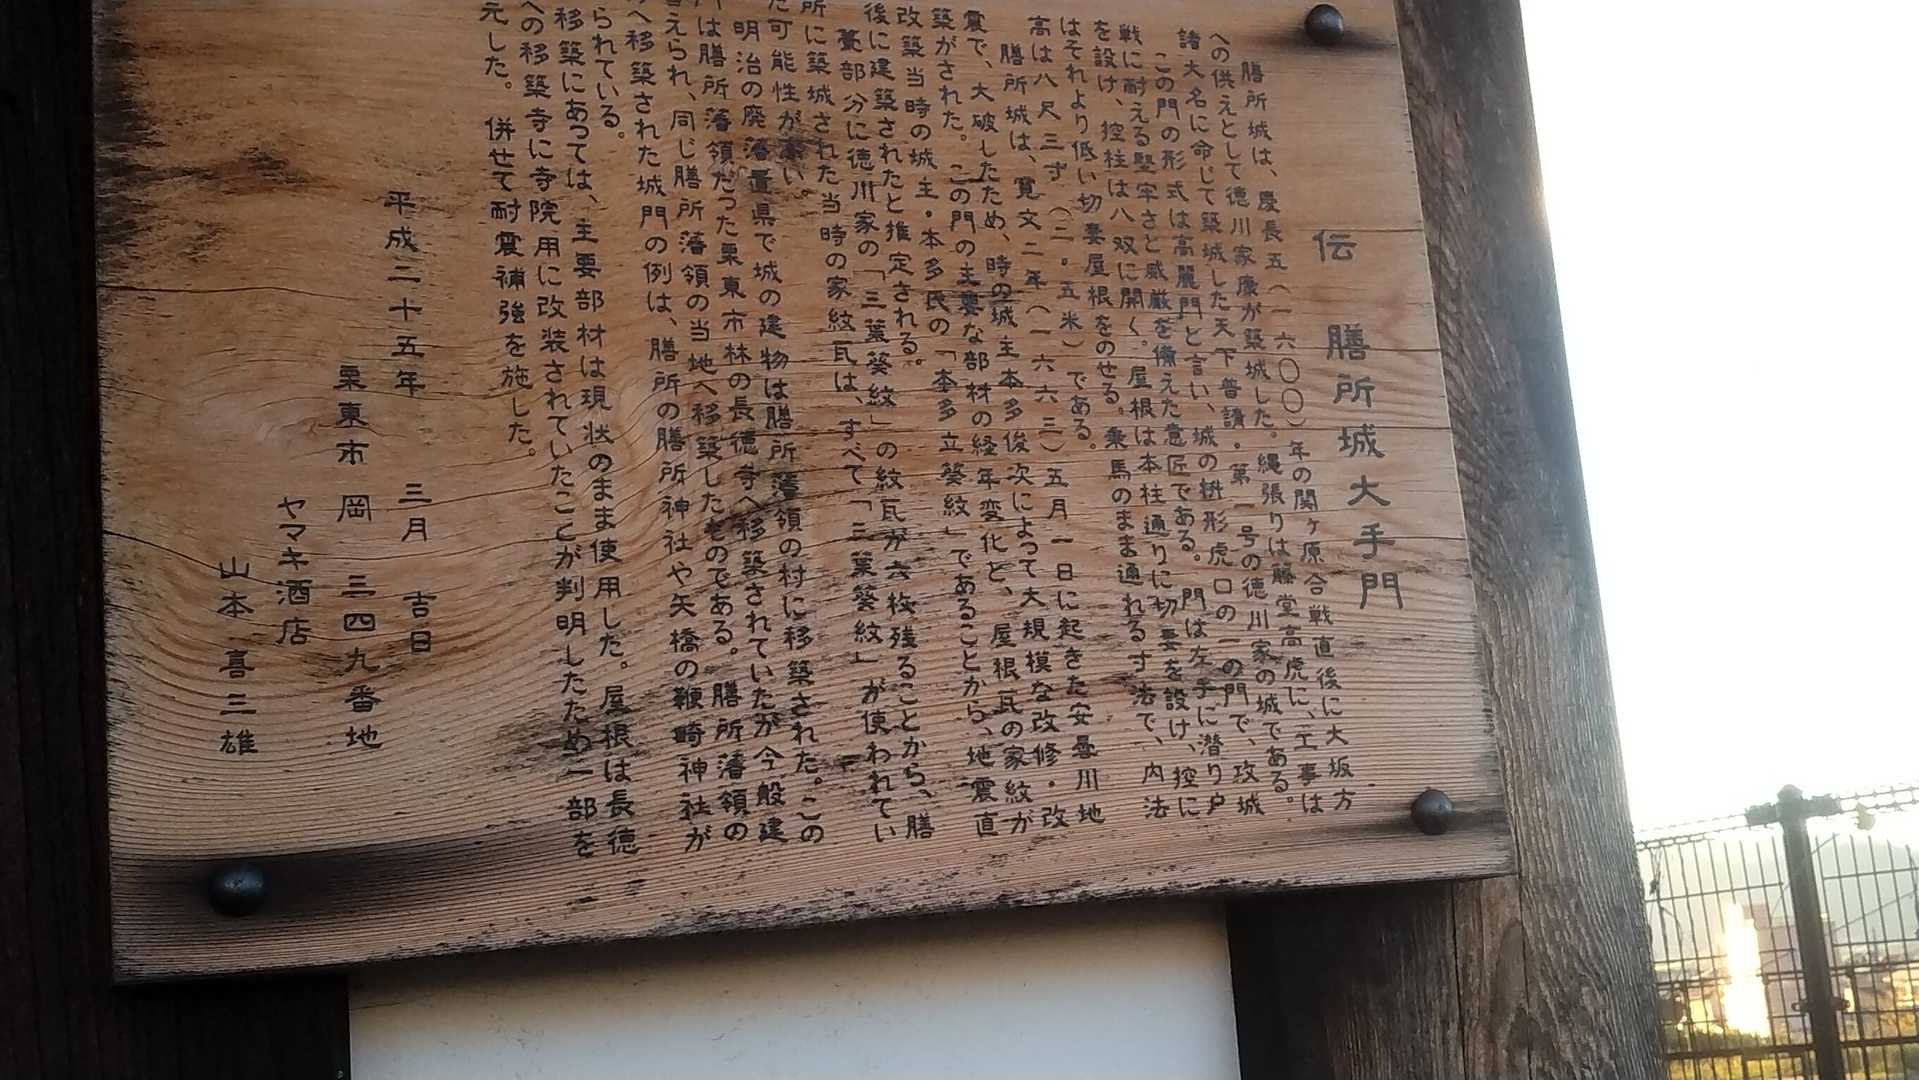 伝 膳所城大手門
膳所城は、慶長五(一六〇〇)年の関ヶ原合戦直後に大坂方
への供えとして徳川家康が築城した。縄張りは藤堂高虎に、工事は
諸大名に命じて築城した天下普請・第一号の徳川家の城である。
この門の形式は高麗門と言い、城の枡形虎口の一の門で、攻城
戦に耐える堅牢さと威厳を備えた意匠である。門は左手に潜り戸
を設け、控柱は八双に開く。屋根は本柱通りに切妻を設け、控に
はそれより低い切妻屋根をのせる。乗馬のまま通れる寸法で、内法
高は八尺三寸(二・五米)である。
膳所城は、寛文二年(一六六三)五月一日に起きた安曇川地
震で、大破したため、時の城主本多俊次によって大規模な改修・改
築がされた。この門の主要な部材の経年変化と、屋根瓦の家紋が
改築当時の城主・本多氏の「本多立葵紋」であることから、地震直
後に建築されたと推定される。
甍部分に徳川家の「三葉葵紋」の紋瓦が六枚残ることから、膳
所に築城された当時の家紋瓦は、すべて「三葉葵紋」が使われてい
た可能性が高い。
明治の廃藩置県で城の建物は膳所藩領の村に移築された。この
門は膳所藩領だった栗東市林の長徳寺へ移築されていたが今般建
替えられ、同じ膳所藩領の当地へ移築したものである。膳所藩領の
へ移築された城門の例は、膳所の膳所神社や矢橋の鞭崎神社が
られている。
移築にあっては、主要部材は現状のまま使用した。屋根は長徳
への移築寺に寺院用に改装されていたことが判明したため一部を
元した。併せて耐震補強を施した。
平成二十五年 三月 吉日
栗東市 岡 三四九番地
ヤマキ酒店
山本 喜三雄